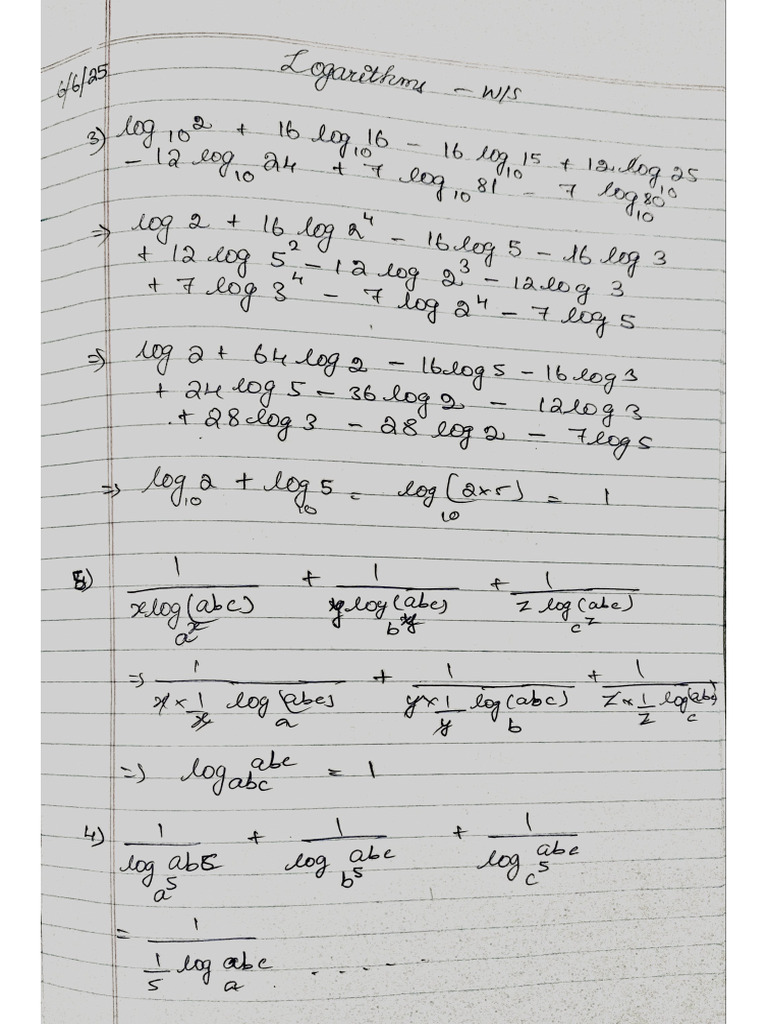 6/6/25
Logarithms - W/S
3) log₁₀2 + 16 log₁₀16 - 16 log₁₀15 + 12 log₁₀25
- 12 log₁₀24 + 7 log₁₀81 - 7 log₁₀80
⇒ log 2 + 16 log 2⁴ - 16 log 5 - 16 log 3
+ 12 log 5² - 12 log 2³ - 12 log 3
+ 7 log 3⁴ - 7 log 2⁴ - 7 log 5
⇒ log 2 + 64 log 2 - 16 log 5 - 16 log 3
+ 24 log 5 - 36 log 2 - 12 log 3
+ 28 log 3 - 28 log 2 - 7 log 5
⇒ log₁₀2 + log₁₀5 = log₁₀(2×5) = 1
5) 1/(x log_{a^x}(abc)) + 1/(y log_{b^y}(abc)) + 1/(z log_{c^z}(abc))
⇒ 1/(x × 1/x log_a(abc)) + 1/(y × 1/y log_b(abc)) + 1/(z × 1/z log_c(abc))
⇒ log_{abc} abc = 1
4) 1/(log_{a⁵} abc) + 1/(log_{b⁵} abc) + 1/(log_{c⁵} abc)
= 1/(1/5 log_a abc) ......